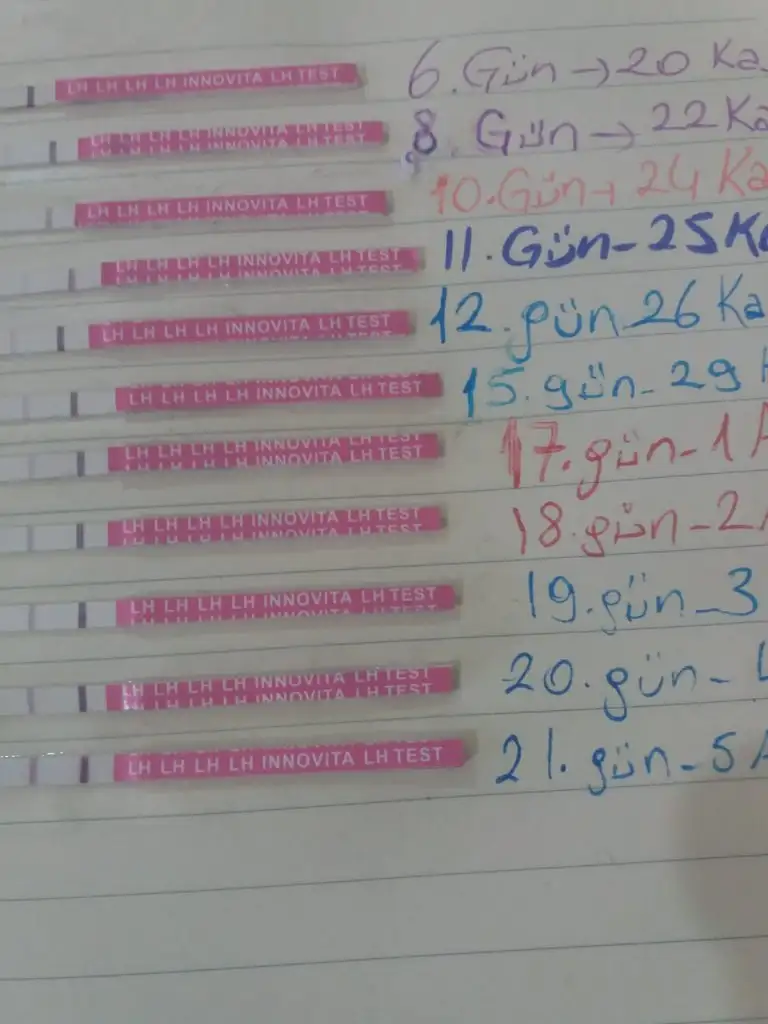 LH LH LH LH INNOVITA LH TEST 6. Gün → 20 Ka
LH LH LH LH INNOVITA LH TEST 8. Gün → 22 Ka
LH LH LH LH INNOVITA LH TEST 10. Gün → 24 Ka
LH LH LH LH INNOVITA LH TEST 11. Gün - 25 Ka
LH LH LH LH INNOVITA LH TEST 12. gün 26 Ka
LH LH LH LH INNOVITA LH TEST 15. gün - 29
LH LH LH LH INNOVITA LH TEST 17. gün - 1 A
LH LH LH LH INNOVITA LH TEST 18. gün - 2
LH LH LH LH INNOVITA LH TEST 19. gün - 3
LH LH LH LH INNOVITA LH TEST 20. gün -
LH LH LH LH INNOVITA LH TEST 21. gün - 5 A